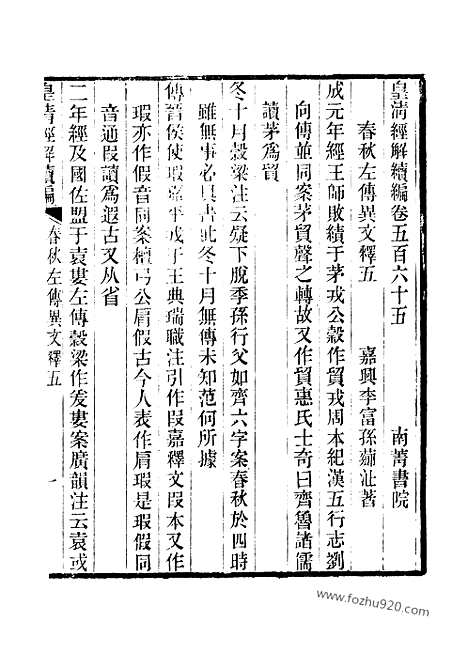 皇清經解續編卷五百六十五　南菁書院
春秋左傳異文釋五　嘉興李富孫薌沚著
成元年經王師敗績于茅戎公穀作貿戎周本紀漢五行志劉
向傳並同案茅貿聲之轉故又作貿惠氏士奇曰齊魯諸儒
讀茅爲貿
冬十月穀梁注云疑下脫季孫行父如齊六字案春秋於四時
雖無事必具書此冬十月無傳未知范何所據
傳晉侯使瑕嘉平戎于王典瑞職注引作叚嘉釋文叚本又作
瑕亦作假音同案檀弓公肩假古今人表作肩瑕是瑕假同
音通叚讀爲遐古又从省
二年經及國佐盟于袁婁左傳穀梁作爰婁案廣韻注云袁或
皇清經解續編
春秋左傳異文釋五
一
www.fozhu920.com